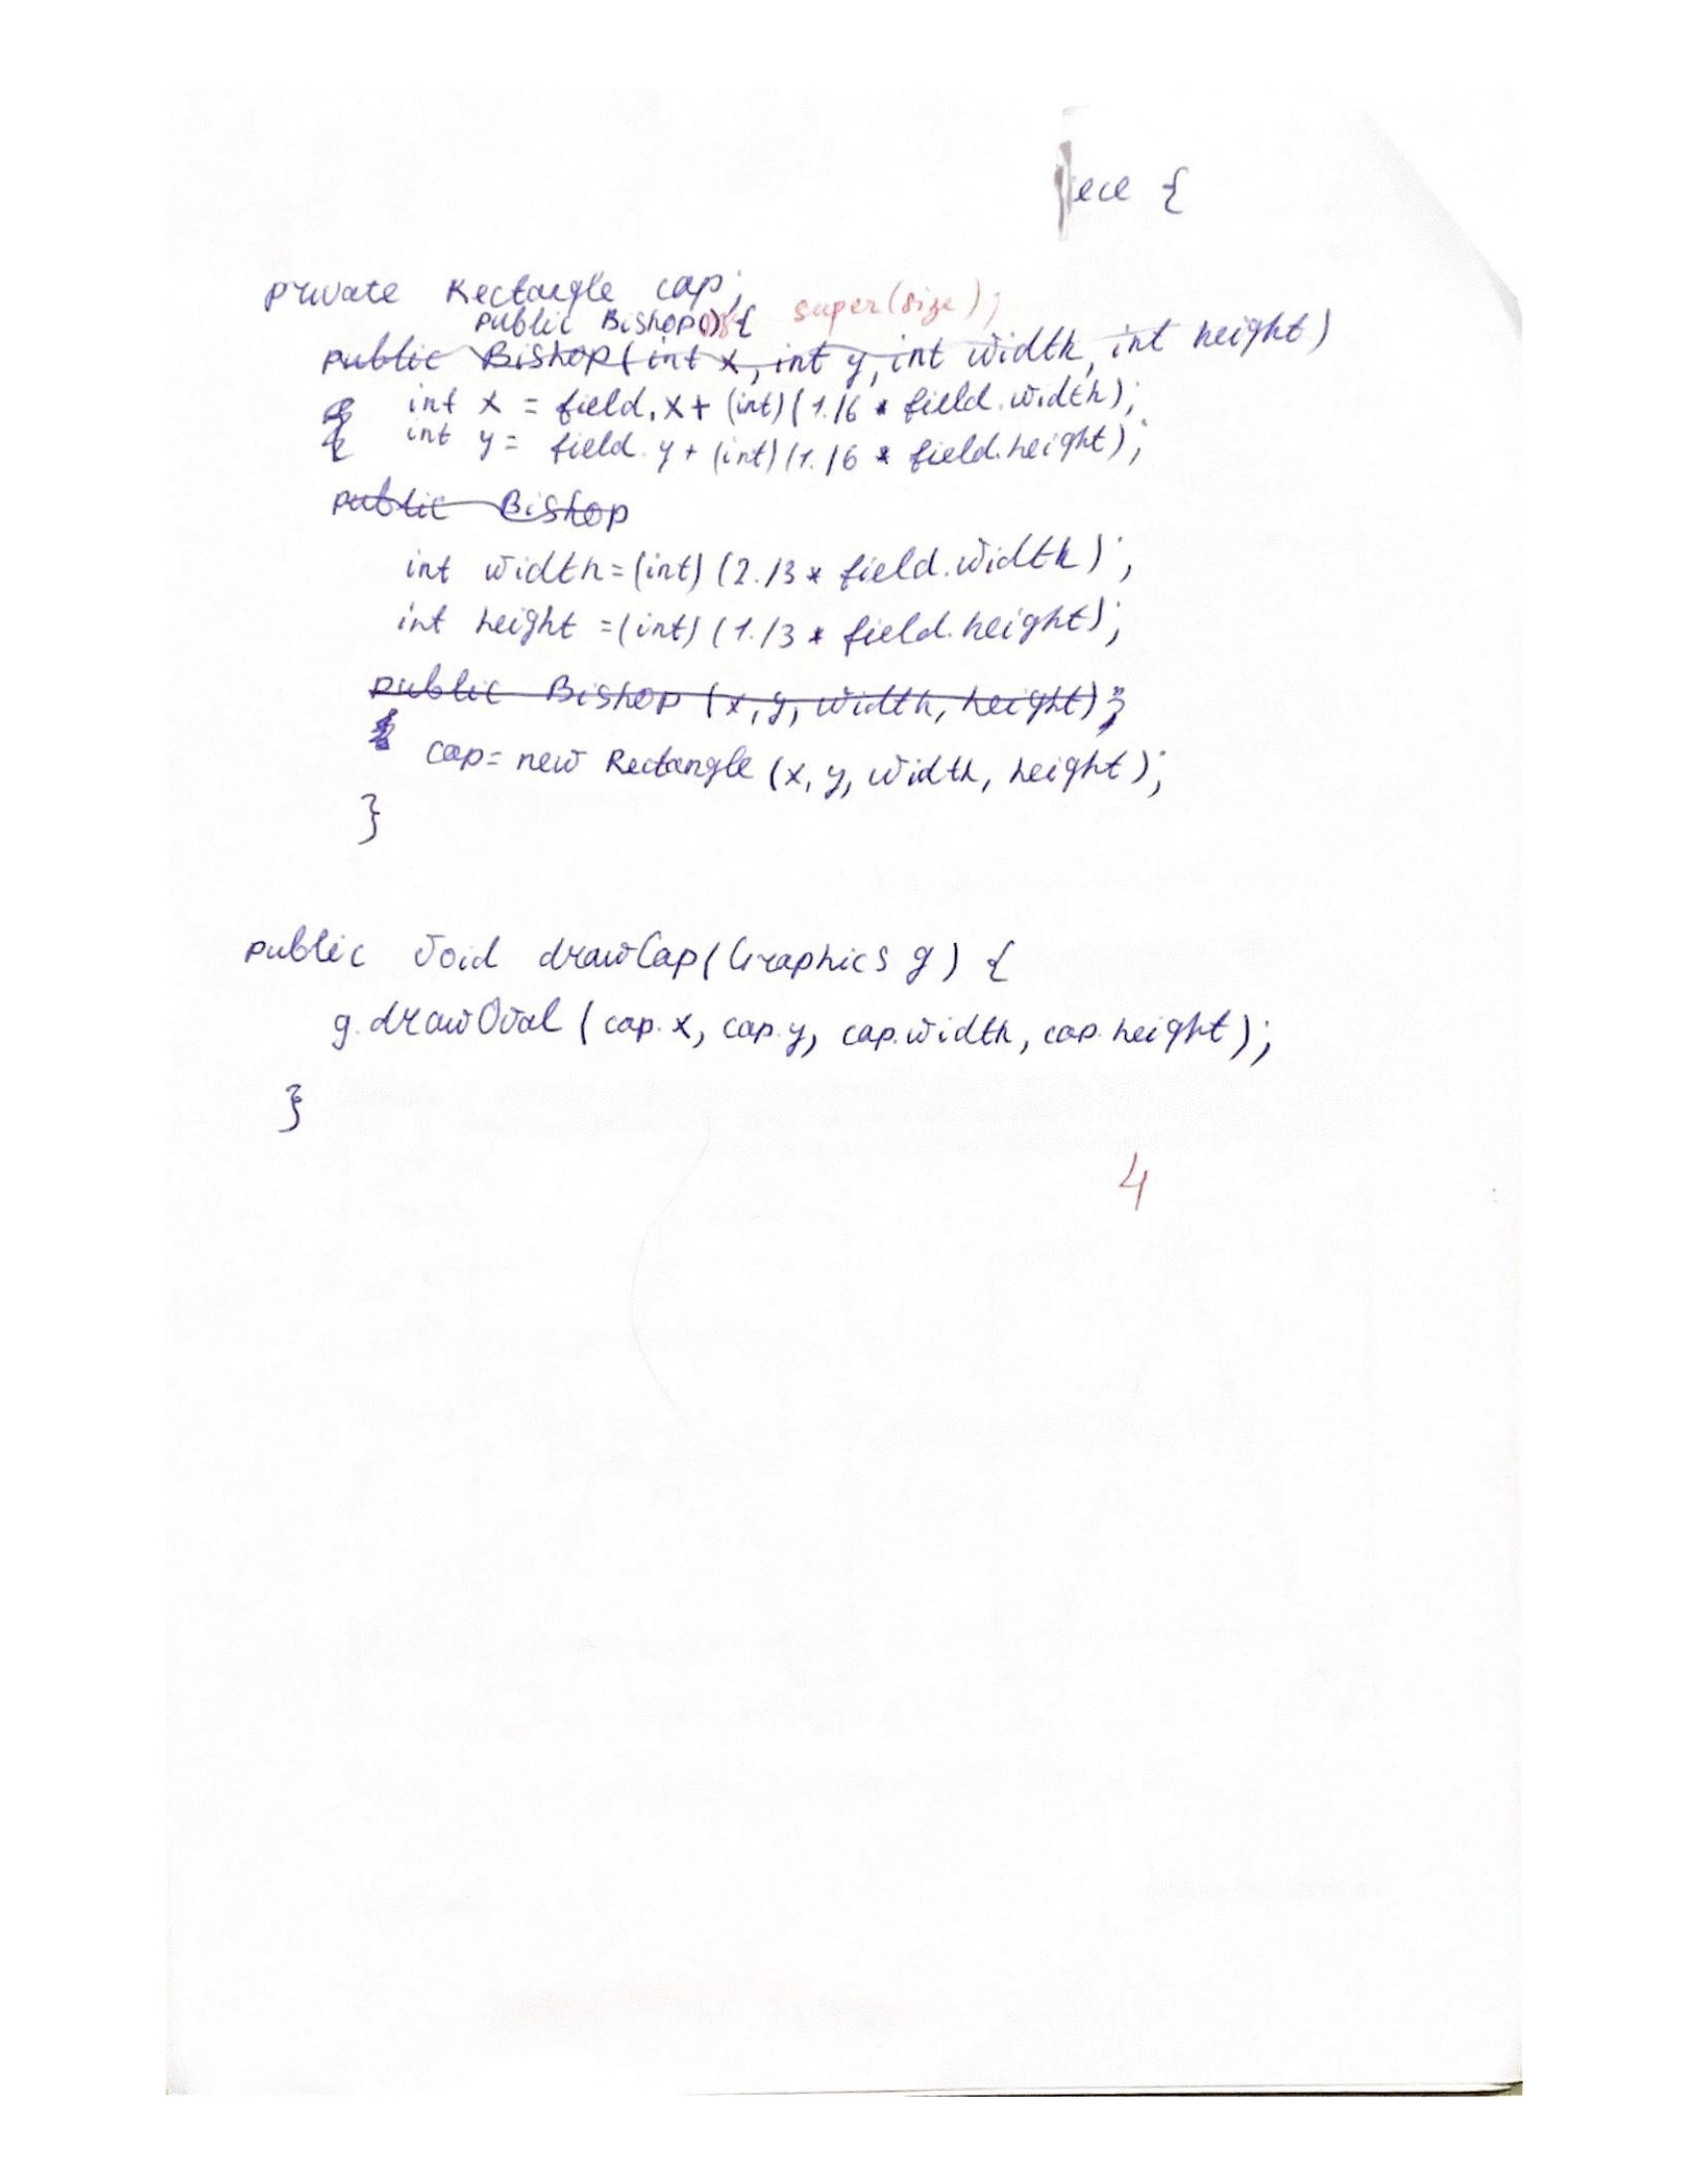 ece {
private Rectangle cap;
public Bishop() { super(size);
public Bishop(int x, int y, int width, int height)
{ int x = field.x + (int)(1./6 * field.width);
{ int y = field.y + (int)(1./6 * field.height);
public Bishop
int width = (int)(2./3 * field.width);
int height = (int)(1./3 * field.height);
public Bishop (x, y, width, height);
{ cap = new Rectangle (x, y, width, height);
}
public void drawCap(Graphics g) {
g.drawOval (cap.x, cap.y, cap.width, cap.height);
}
4